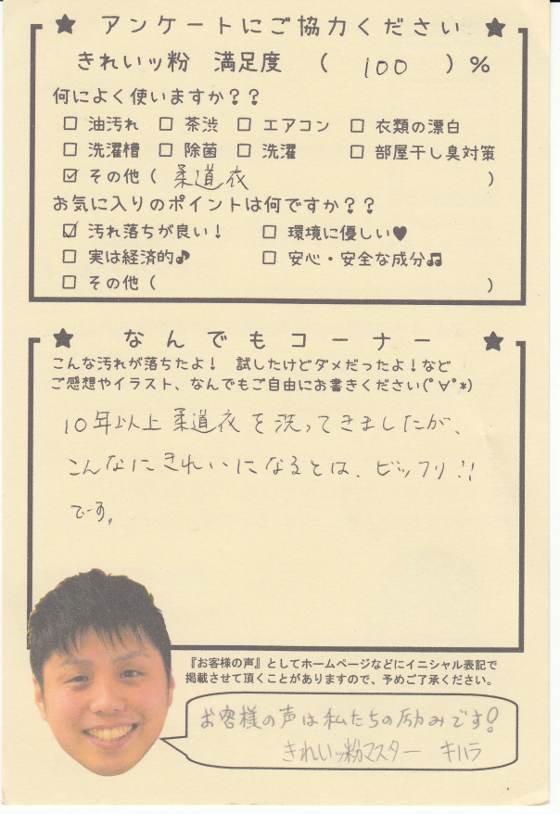 ★ アンケートにご協力ください ★
きれいッ粉 満足度 ( 100 ) %
何によく使いますか？？
□ 油汚れ □ 茶渋 □ エアコン □ 衣類の漂白
□ 洗濯槽 □ 除菌 □ 洗濯 □ 部屋干し臭対策
☑ その他 ( 柔道衣 )
お気に入りのポイントは何ですか？？
☑ 汚れ落ちが良い！ □ 環境に優しい♥
□ 実は経済的♪ □ 安心・安全な成分♫
□ その他 ( )
★ なんでもコーナー ★
こんな汚れが落ちたよ！ 試したけどダメだったよ！など
ご感想やイラスト、なんでもご自由にお書きください(ﾟ∀ﾟ*)
10年以上柔道衣を洗ってきましたが、
こんなにきれいになるとは、ビックリ!!
です。
『お客様の声』としてホームページなどにイニシャル表記で
掲載させて頂くことがありますので、予めご了承ください。
お客様の声は私たちの励みです!
きれいッ粉マスター キハラ